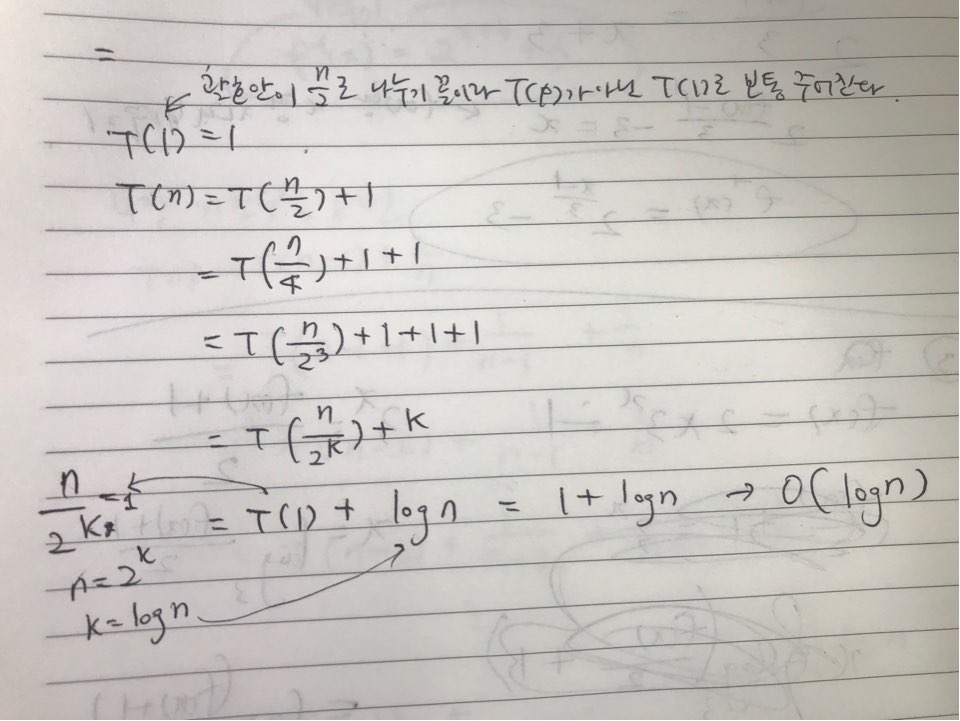 =
괄호안이 n/2로 나누기 꼴이라 T(0)가 아닌 T(1)로 보통 주어진다.
T(1) = 1
T(n) = T(n/2) + 1
= T(n/4) + 1 + 1
= T(n/2³) + 1 + 1 + 1
= T(n/2^k) + k
n/2^k = 1
= T(1) + log n = 1 + log n → O(log n)
n = 2^k
k = log n